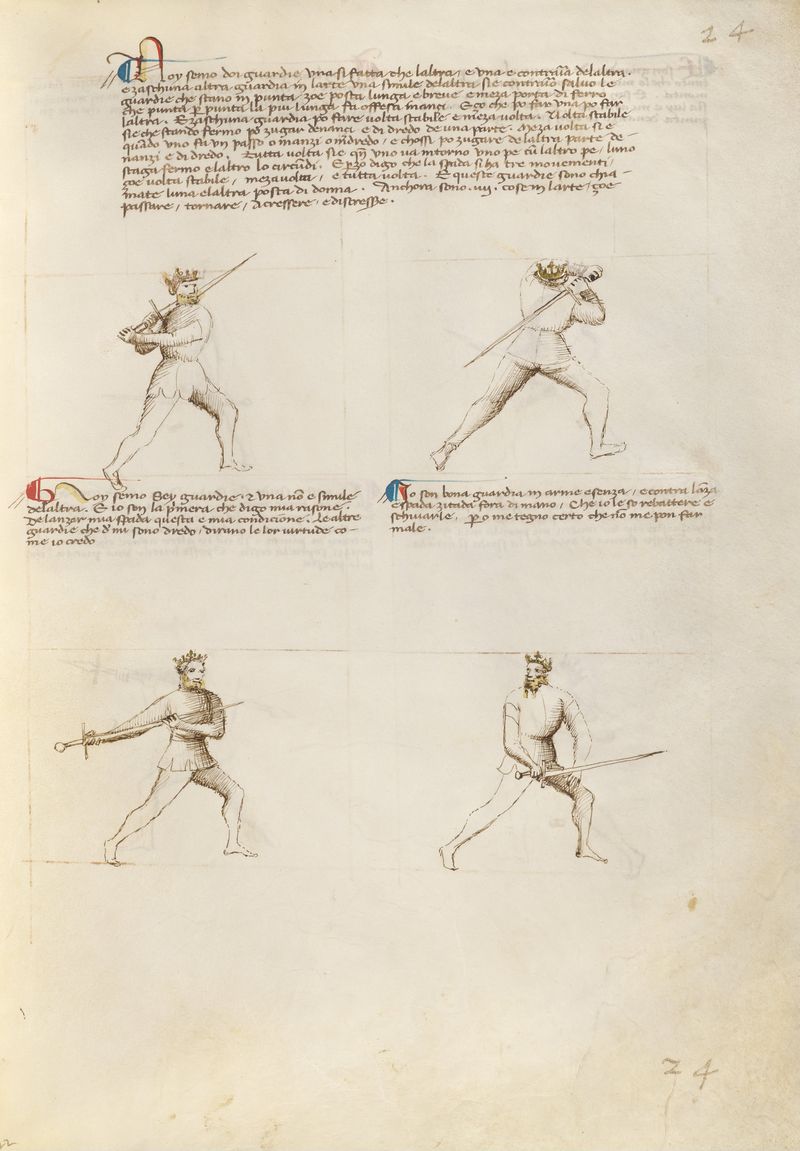 24
Noy semo doi guardie una si fatta che laltra, e una e contraria delaltra.
e zaschuna altra guardia in larte una simile delaltra sie contrario salvo le
guardie che stano in punta, zoe posta lunga e breve e meza porta di ferro
che punta per punta la piu lunga fa offesa inanci. E zo che po far una po far
laltra. E zaschuna guardia po fare volta stabile e meza volta. Volta stabile
sie che stando fermo po zugar denanci e di dredo de una parte. Meza volta si e
quando uno fa un passo o inanzi o indredo, e chossi po zugare de laltra parte de-
nanzi e di dredo. Tutta volta sie quando uno va intorno uno pe cum laltro pe, luno
staga fermo e laltro lo circundi. Perzo digo che la spada si ha tre movimenti,
zoe volta stabile, meza volta, e tutta volta. E queste guardie sono chia-
mate luna e laltra posta di donna. Anchora sono .iiij. cose in larte, zoe
passare, tornare, acressere, e discresse.
Noy semo Sey guardie, & una non e simile
delaltra. E io son la primera che digo mia rasone.
De lanzar mia spada questa e mia condicione. Le altre
guardie che de mi sono dredo, dirano le lor virtude co-
me io credo
Io son bona guardia in arme e senza, e contra lanza
e spada zitada fora di mano, Che io le so rebattere e
schivarle. Pero me tegno certo che non me pon far
male.
24